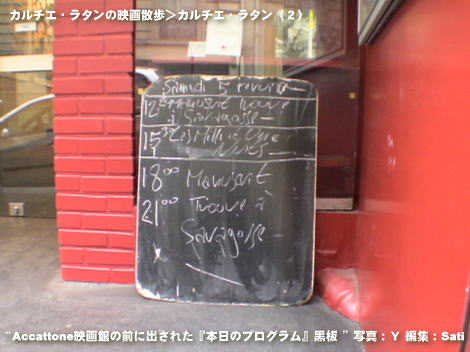 カルチエ・ラタンの映画散歩＞カルチエ・ラタン（２）
Samedi 5 fevrier
12 Manuscrit Trouve
à Saragosse
15 Les Mille et Une
Nuits
18 00 Manuscrit
21 00 Trouve à
Saragosse
“Accattone映画館の前に出された『本日のプログラム』黒板 ” 写真：Ｙ 編集：Sati